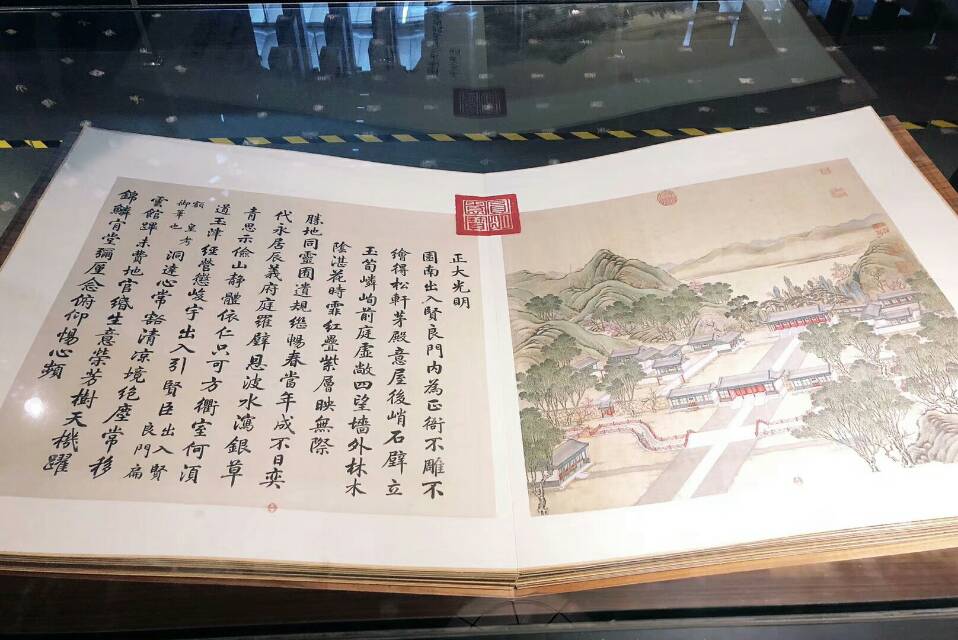 正大光明
園南出入賢良門内為正衙不雕不
繪得松軒茅殿意屋後峭石壁立
玉筍嶙峋前庭虛敞四望墻外林木
陰湛花時霏紅疊紫層映無際
勝地同靈囿遺規繼暢春當年成不日奕
代永居辰義府庭羅壁恩波水瀉銀草
青思示儉山静體依仁只可方衢室何湏
道玉津經營懲峻宇出入引賢臣出入賢良門扁
額皇考御筆也洞達心常豁清凉境絶塵常移
雲館蹕未費地官緡生意榮芳樹天機躍
錦鱗肯堂彌厪念俯仰惕心頻